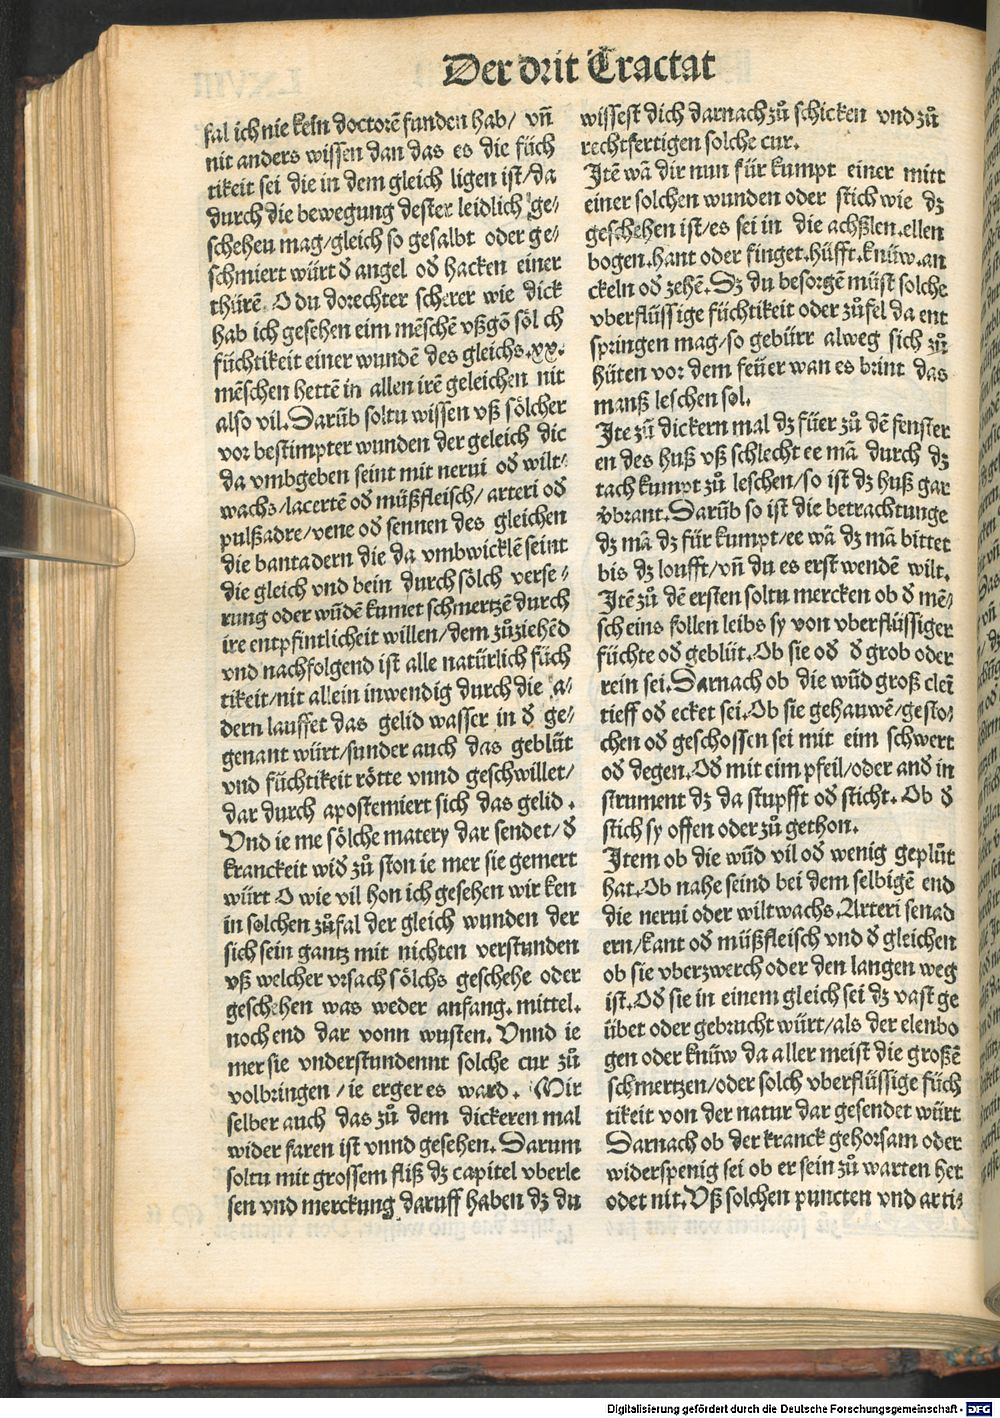 Der drit Tractat
fal ich nie kein doctorē funden hab/ vñ
nit anders wissen dan das es die füch
tikeit sei die in dem gleich ligen ist/da
durch die bewegung dester leidlich ge⸗
schehen mag/gleich so gesalbt oder ge⸗
schmiert würt d̕ angel od̕ hacken einer
thürē. O du dorechter scherer wie dick
hab ich gesehen eim mēschē vßgō söl ch
füchtikeit einer wundē des gleichs.xx.
mēschen hettē in allen irē geleichen nit
also vil. Darūb soltu wissen vß sölcher
vor bestimpter wunden der geleich die
da vmbgeben seint mit nerui od̕ wilt⸗
wachs/lacertē od̕ müßfleisch/arteri od̕
pulßadre/vene od̕ sennen des gleichen
die bantadern die da vmbwicklē seint
die gleich vnd bein durch sölch verse⸗
rung oder wūdē kumet schmertzē durch
ire entpfintlicheit willen/dem zůziehēd
vnd nachfolgend ist alle natürlich füch
tikeit/nit allein inwendig durch die a⸗
dern lauffet das gelid wasser in d̕ ge⸗
genant würt/sunder auch das geblüt
vnd füchtikeit rötte vnnd geschwillet/
dar durch apostemiert sich das gelid.
Vnd ie me sölche matery dar sendet/d̕
kranckeit wid̕ zů ston ie mer sie gemert
würt O wie vil hon ich gesehen wircken
in solchen zůfal der gleich wunden der
sich sein gantz mit nichten verstunden
vß welcher vrsach sölchs geschehe oder
geschehen was weder anfang. mittel.
noch end dar vonn wusten. Vnnd ie
mer sie vnderstundennt solche cur zů
volbringen/ie erger es ward. Mir
selber auch das zů dem dickeren mal
wider faren ist vnnd gesehen. Darum
soltu mit grossem fliß dz capitel vberle
sen vnd merckung daruff haben dz du
wissest dich darnach zů schicken vnd zů
rechtfertigen solche cur.
Itē wā dir nun für kumpt einer mitt
einer solchen wunden oder stich wie dz
geschehen ist/es sei in die achßlen.ellen
bogen.hant oder finget.hüfft.knüw.an
ckeln od̕ zehē. Dz du besorgē müst solche
vberflüssige füchtikeit oder zůfel da ent
springen mag/so gebürr alweg sich zů
hüten vor dem feüer wan es brint das
manß leschen sol.
Ite zū dickern mal dz füer zů dē fenster
en des huß vß schlecht ee mā durch dz
tach kumpt zů leschen/so ist dz huß gar
vbrant. Darūb so ist die betrachtunge
dz mā dz für kumpt/ee wā dz mā bittet
bis dz loufft/vñ du es erst wendē wilt.
Itē zů dē ersten soltu mercken ob d̕ mē⸗
sch eins follen leibs sy von vberflüssiger
füchte od̕ geblüt. Ob sie od̕ d̕ grob oder
rein sei. Darnach ob die wūd groß cleī
tieff od̕ ecket sei. Ob sie gehauwē/gesto⸗
chen od̕ geschossen sei mit eim schwert
od̕ degen. Od̕ mit eim pfeil/oder and̕ in
strument dz da stupfft od̕ sticht. Ob d̕
stich sy offen oder zů gethon.
Item ob die wūd vil od̕ wenig geplüt
hat. Ob nahe seind bei dem selbigē end
die nerui oder wiltwachs. Arteri senad
ern/kant od̕ müßfleisch vnd d̕ gleichen
ob sie vberzwerch oder den langen weg
ist. Od̕ sie in einem gleich sei dz vast ge
übet oder gebrucht würt/als der elenbo
gen oder knüw da aller meist die großē
schmertzen/oder solch vberflüssige füch
tikeit von der natur dar gesendet würt
Darnach ob der kranck gehorsam oder
widerspenig sei ob er sein zů warten het
odet nit. Vß solchen puncten vnd arti⸗
Digitalisierung gefördert durch die Deutsche Forschungsgemeinschaft - DFG